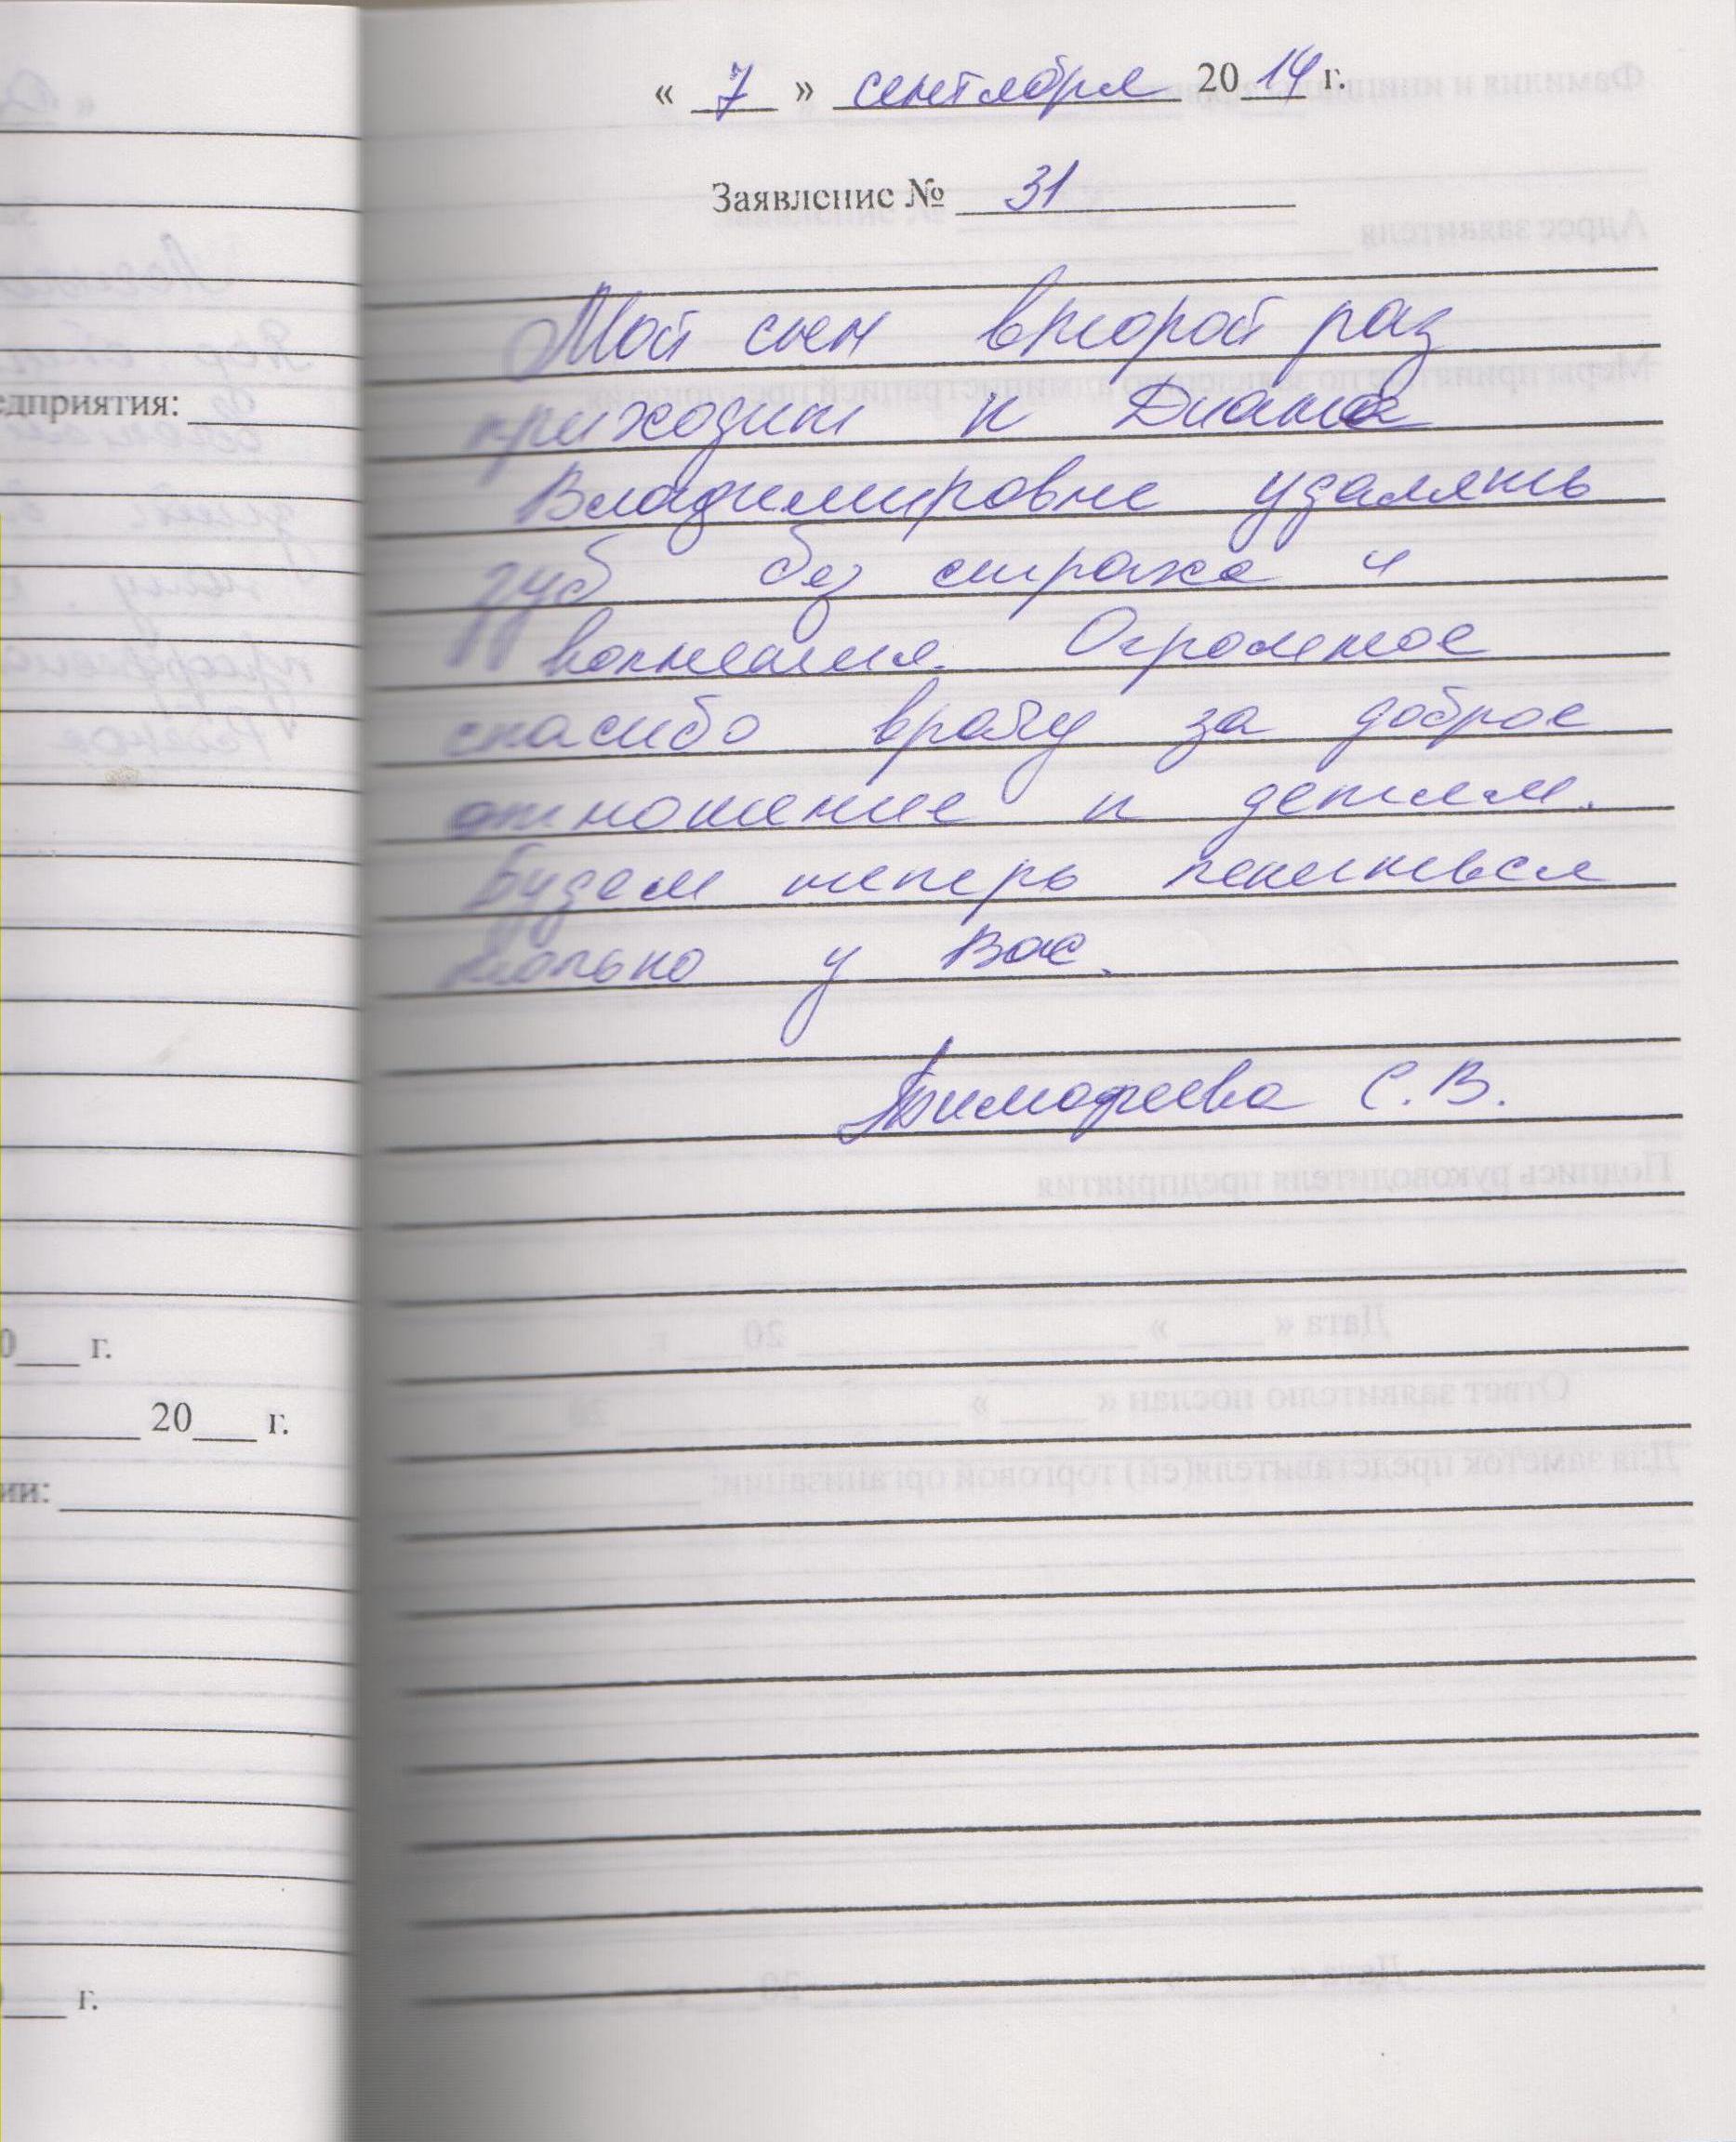 « 7 » сентября 2014 г.
Заявление № 31
Мой сын второй раз
приходит к Диане
Владимировне удалять
зуб без страха и
волнения. Огромное
спасибо врачу за доброе
отношение к детям.
Будем теперь лечиться
только у Вас.
Тимофеева С.В.
едприятия:
0___ г.
20___ г.
ии:
г.